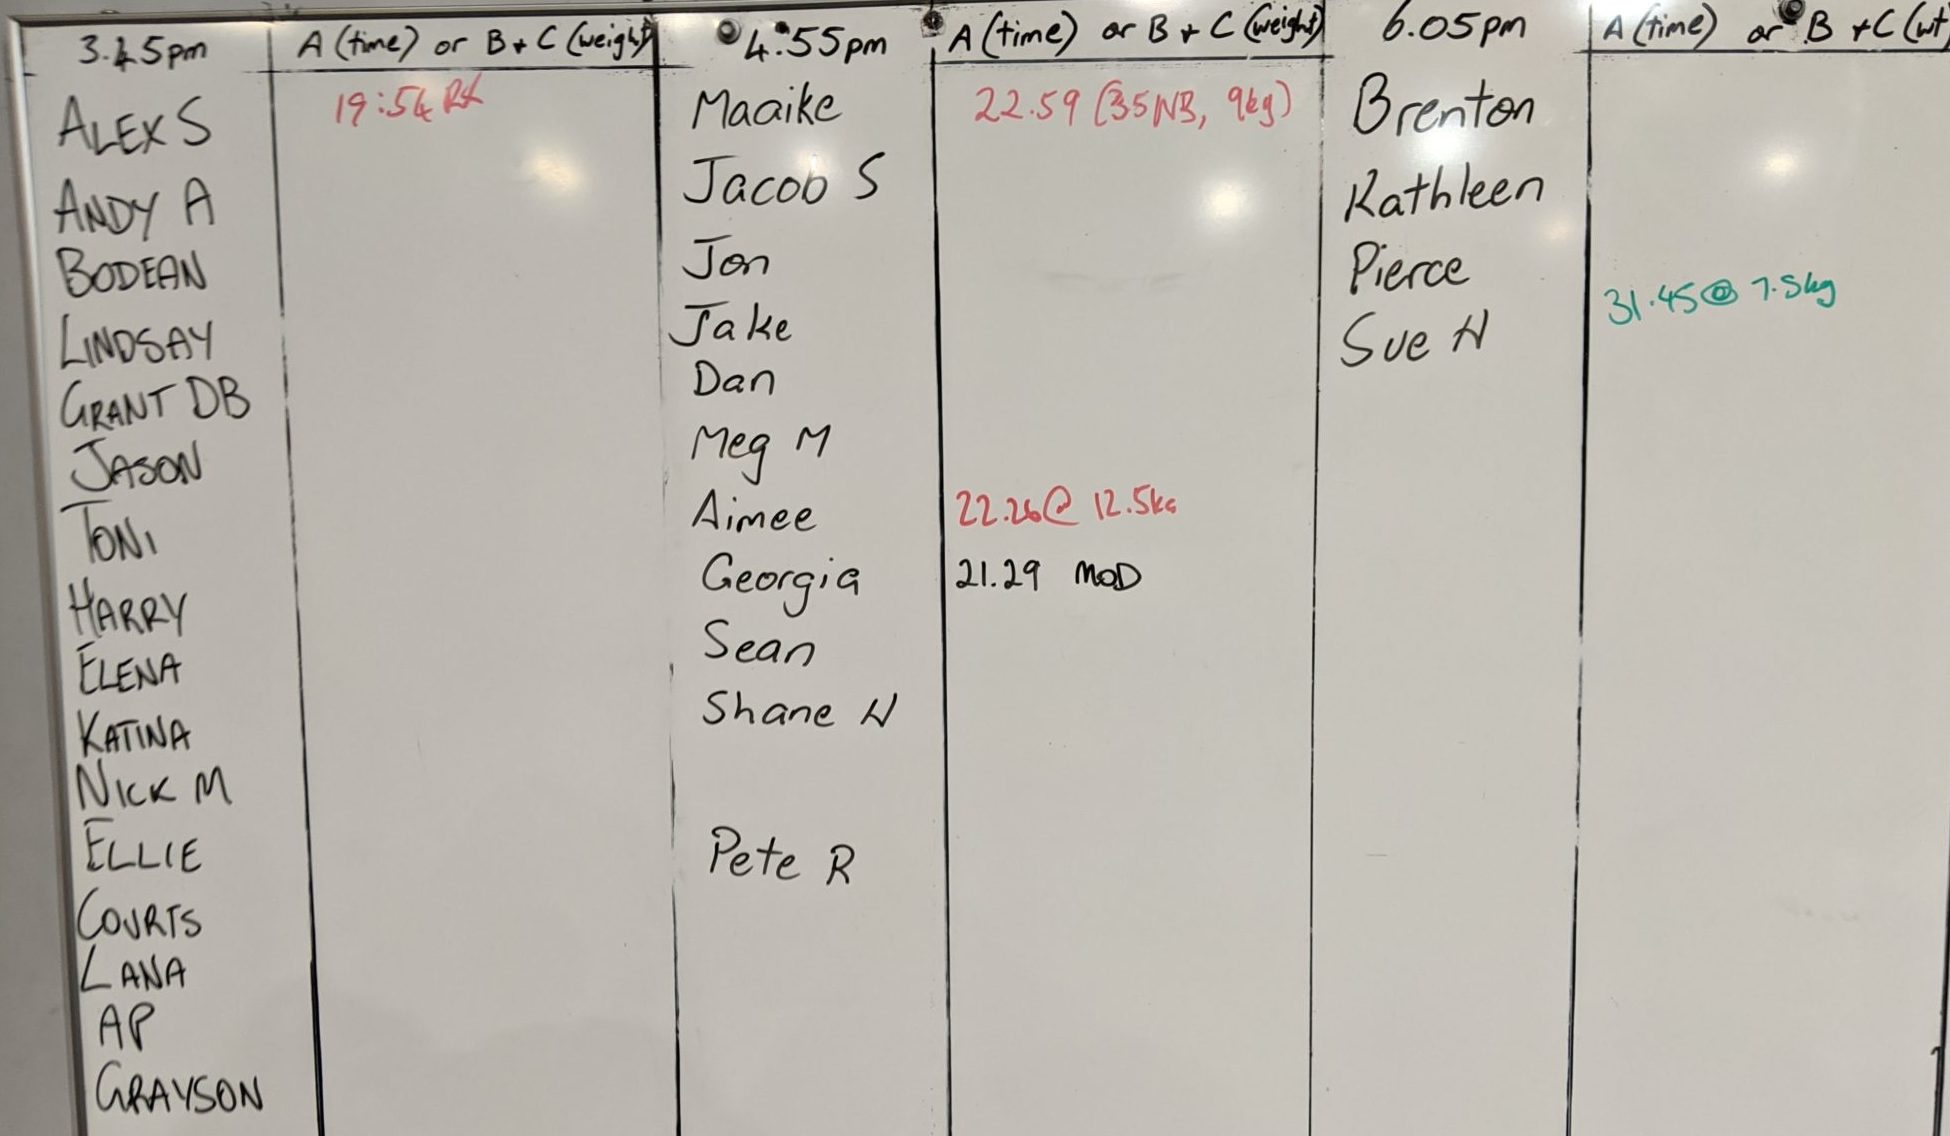 3.45pm A (time) or B + C (weight) 4.55pm A (time) or B + C (weight) 6.05pm A (time) or B + C (wt)
ALEX S 19:54 RX Maaike 22.59 (35NB, 9kg) Brenton
ANDY A Jacob S Kathleen
BODEAN Jon Pierce
LINDSAY Jake Sue H 31.45 @ 7.5kg
GRANT DB Dan
JASON Meg M
TONI Aimee 22.26 @ 12.5kg
HARRY Georgia 21.29 MOD
ELENA Sean
KATINA Shane H
NICK M
ELLIE Pete R
COURTS
LANA
AP
GRAYSON